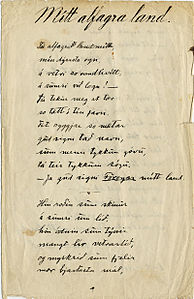 Mitt alfagra land.
Tú alfagra land mitt,
mín dýrasta ogn,
á vetri so randhvítt,
á sumri við logn! —
Tú tekur meg at tær
so tætt í tín favn.
Tit oyggjar so mætar
guð signi tað navn,
sum menn tykkum góvu,
tá teir tykkum sóu.
— Ja guð signi Føroyar mitt land.
Hin roðin sum skínur
á sumri í líð,
hin ódnin sum týnir
mangt lív vetrartíð,
og myrkrið sum fjalir
mær bjartasta mál,